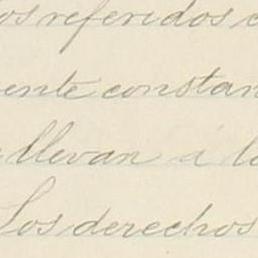 los referidos
ente constan
llevan á l
Los derechos